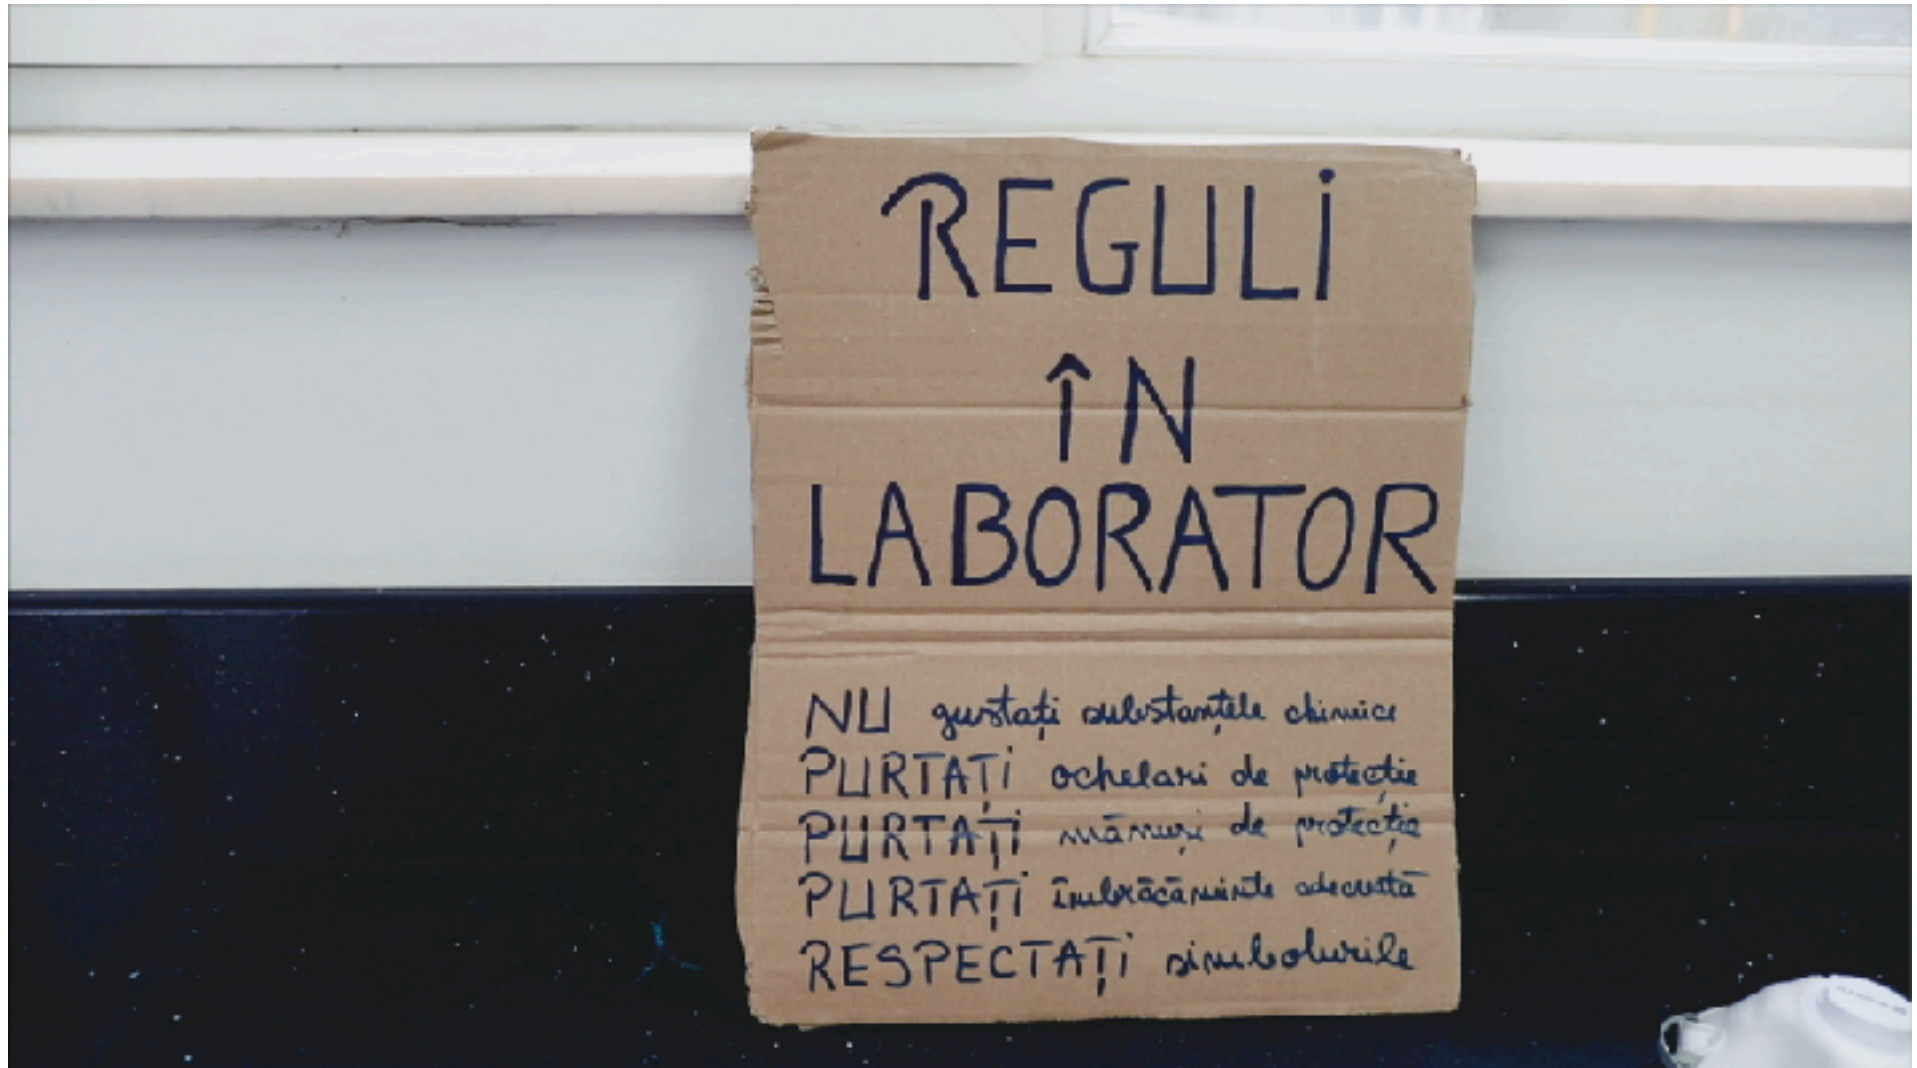 REGULI
ÎN
LABORATOR
NU gustați substanțele chimice
PURTAȚI ochelari de protecție
PURTAȚI mănuși de protecție
PURTAȚI îmbrăcăminte adecvată
RESPECTAȚI simbolurile